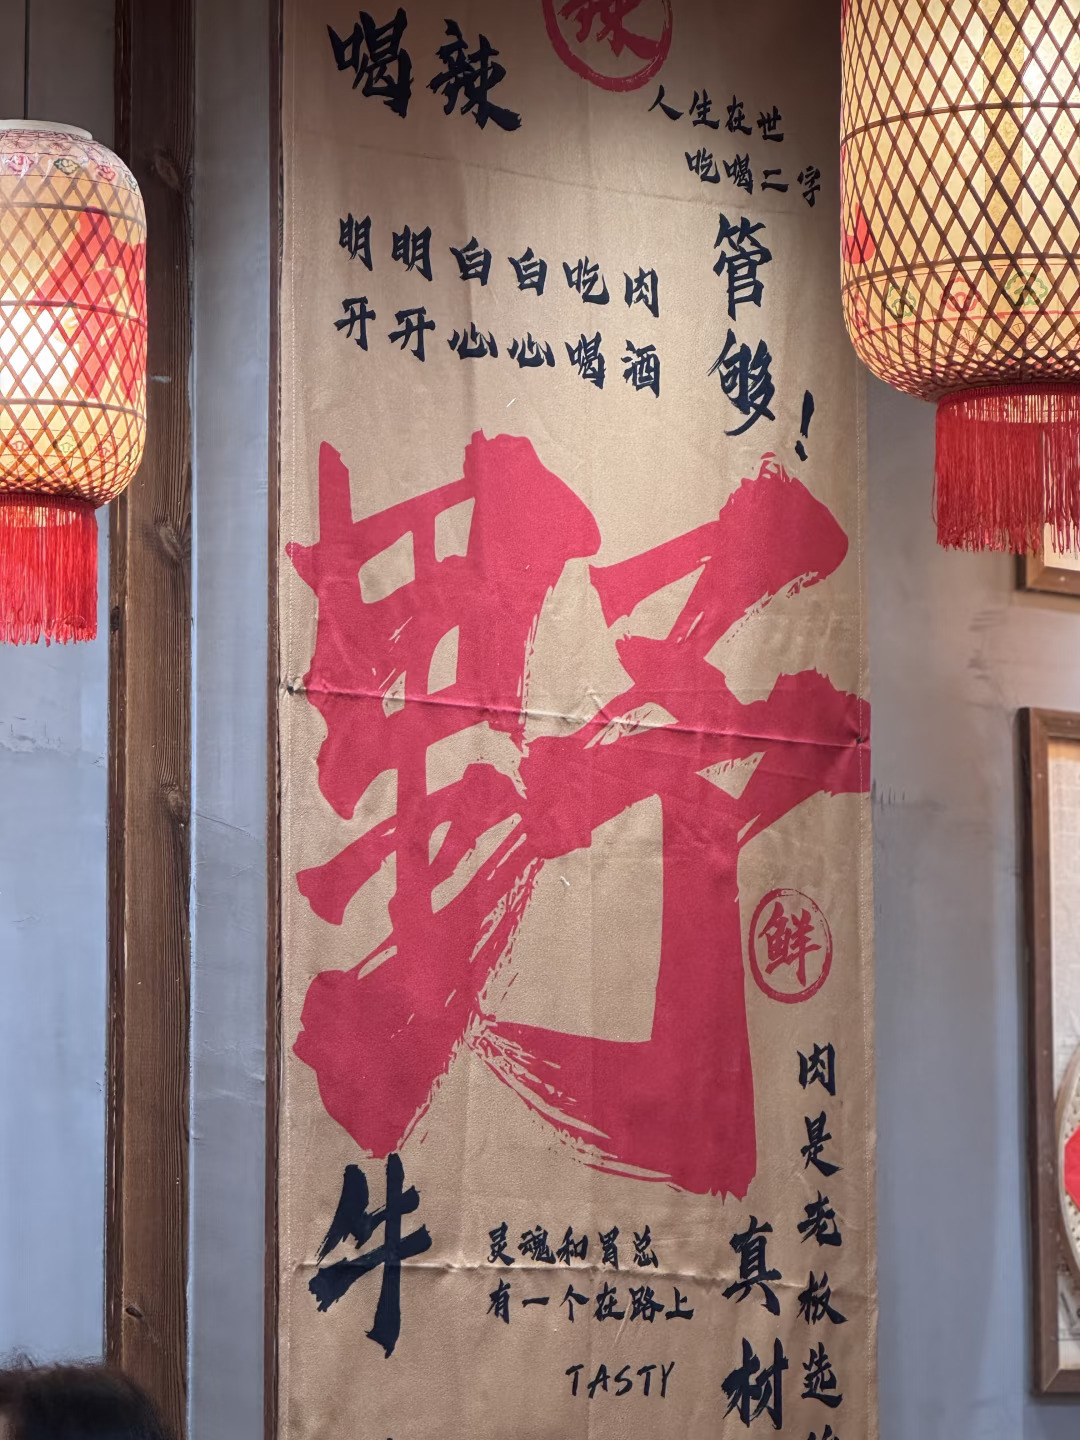 喝辣
辣
人生在世
吃喝二字
明明白白吃肉
开开心心喝酒
管够！
野
鲜
牛
灵魂和胃总
有一个在路上
TASTY
真材
肉是老板选